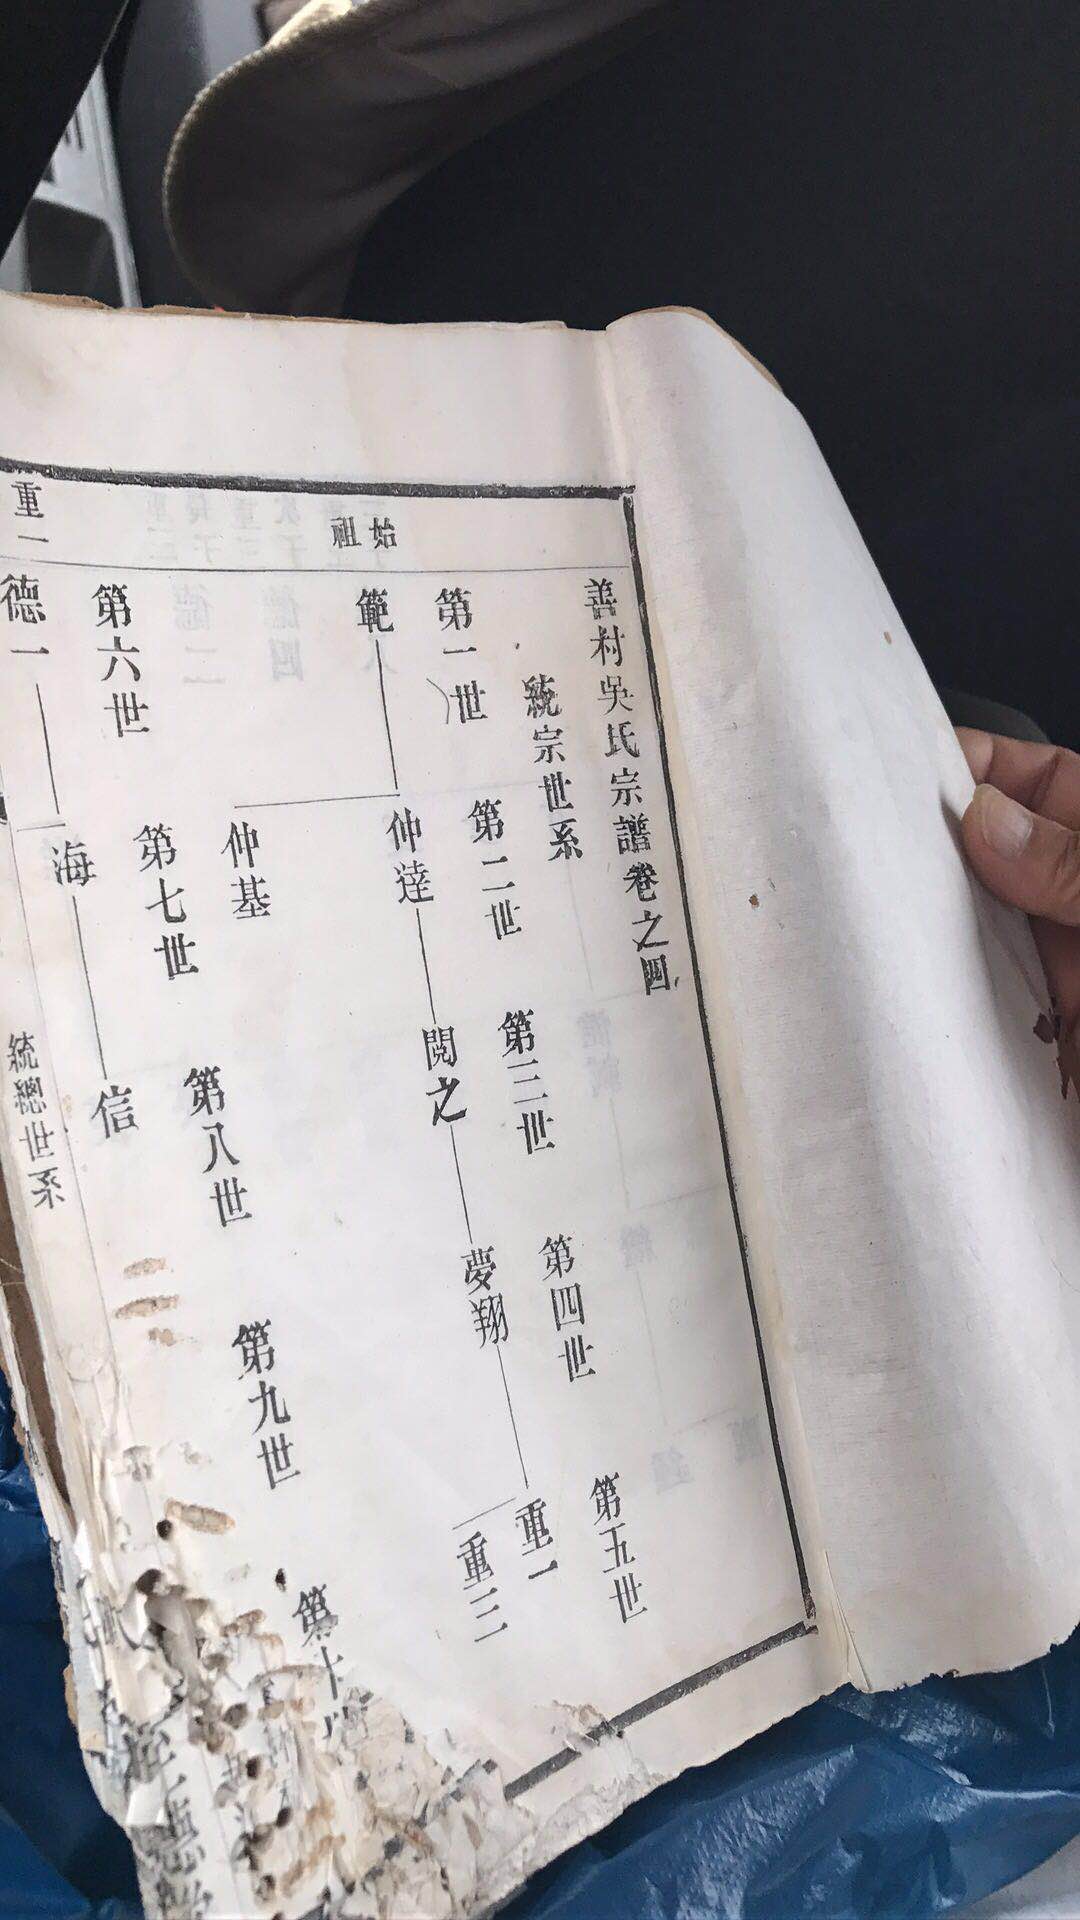 善村吳氏宗譜卷之四
統宗世系
第一世
第二世
第三世
第四世
第五世
始祖
範
仲達
閲之
夢翔
重一
仲基
重三
第六世
第七世
第八世
第九世
第十世
重一
德一
海
信
統總世系